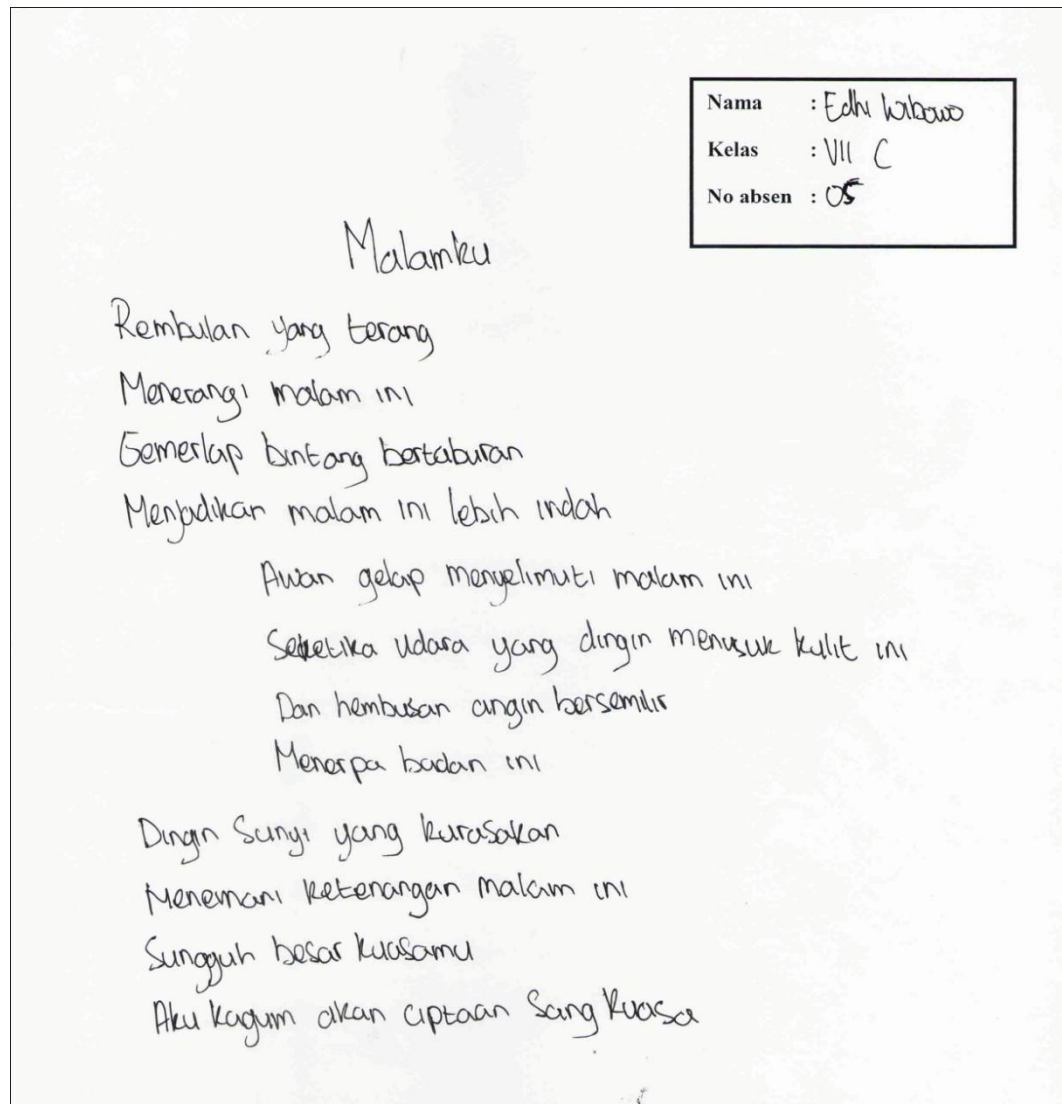 Nama : Edhi Wibowo
Kelas : VII C
No absen : 05
Malamku
Rembulan yang terang
Menerangi malam ini
Gemerlap bintang bertaburan
Menjadikan malam ini lebih indah
Awan gelap menyelimuti malam ini
Seketika udara yang dingin menusuk kulit ini
Dan hembusan angin bersemilir
Menerpa badan ini
Dingin Sunyi yang kurasakan
Menemani ketenangan malam ini
Sungguh besar kuasamu
Aku kagum akan ciptaan Sang kuasa